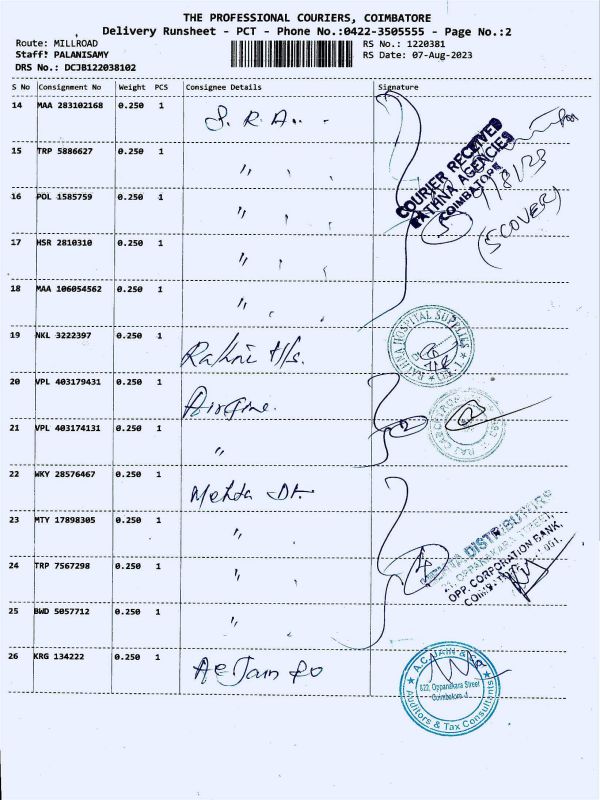 THE PROFESSIONAL COURIERS, COIMBATORE
Delivery Runsheet - PCT - Phone No.:0422-3505555 - Page No.:2
Route: MILLROAD RS No.: 1220381
Staff: PALANISAMY RS Date: 07-Aug-2023
DRS No.: DCJB122038102
S No Consignment No Weight PCS Consignee Details Signature
14 MAA 283102168 0.250 1 S. R. A..
COURIER RECEIVED
RATHNA AGENCIES
COIMBATORE
7/8/23
(5 COVER)
5
15 TRP 5886627 0.250 1 "
16 POL 1585759 0.250 1 "
17 HSR 2810310 0.250 1 "
18 MAA 106054562 0.250 1 "
19 NKL 3222397 0.250 1 Rathni H/s.
RATHNA HOSPITAL SUPPLIES
20 VPL 403179431 0.250 1
21 VPL 403174131 0.250 1 "
2
22 WKY 28576467 0.250 1 Mehta Dt.
23 MTY 17898305 0.250 1 "
24 TRP 7567298 0.250 1 "
4
DISTRIBUTORS
OPPANAKARA STREET,
OPP. CORPORATION BANK,
25 BWD 5057712 0.250 1 "
26 KRG 134222 0.250 1 AC Jain &o
A.C. JAIN & Co
622, Oppanakara Street
Coimbatore -1
Auditors & Tax Consultants